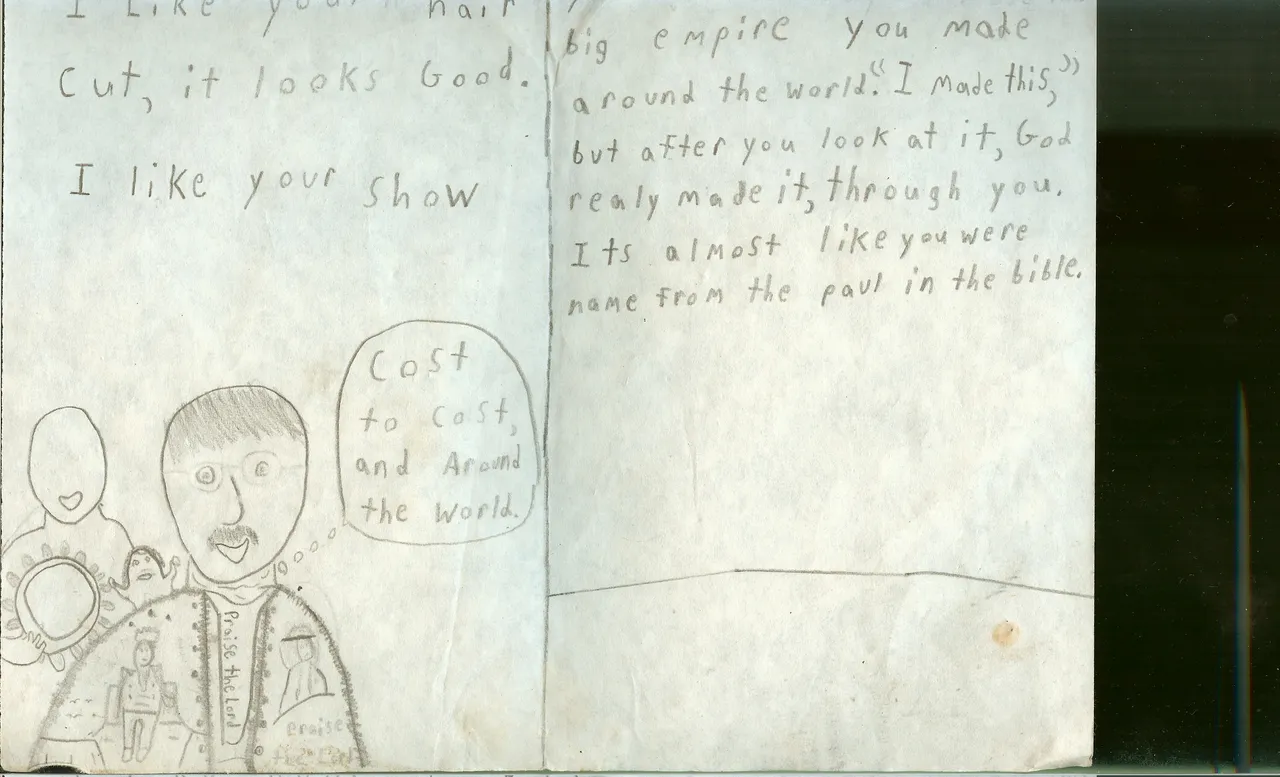 I Like your hair
Cut, it looks Good.
I like your show
Cost
to Cost,
and Around
the World.
Praise the Lord
Praise
the Lord
big empire you made
around the world. "I made this,"
but after you look at it, God
realy made it, through you.
Its almost like you were
name from the paul in the bible.